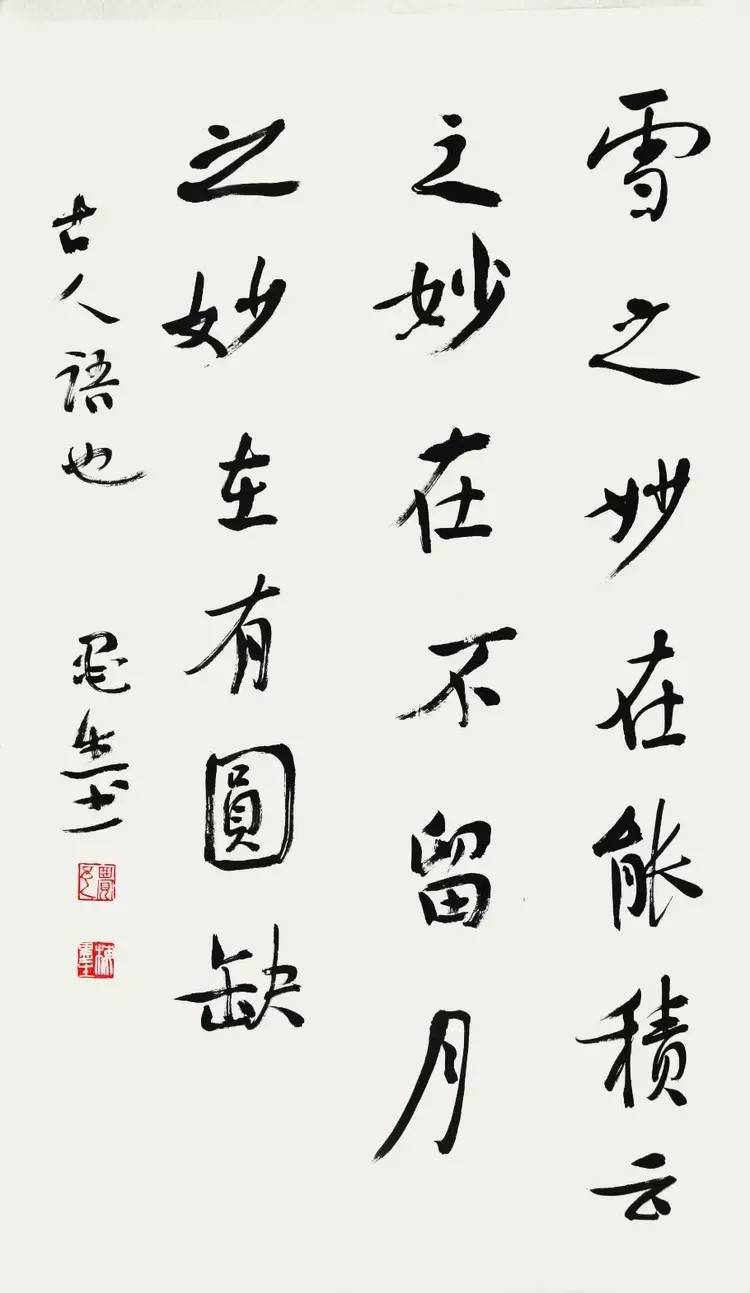 雪之妙在能積云
之妙在不留月
之妙在有圓缺
古人語也